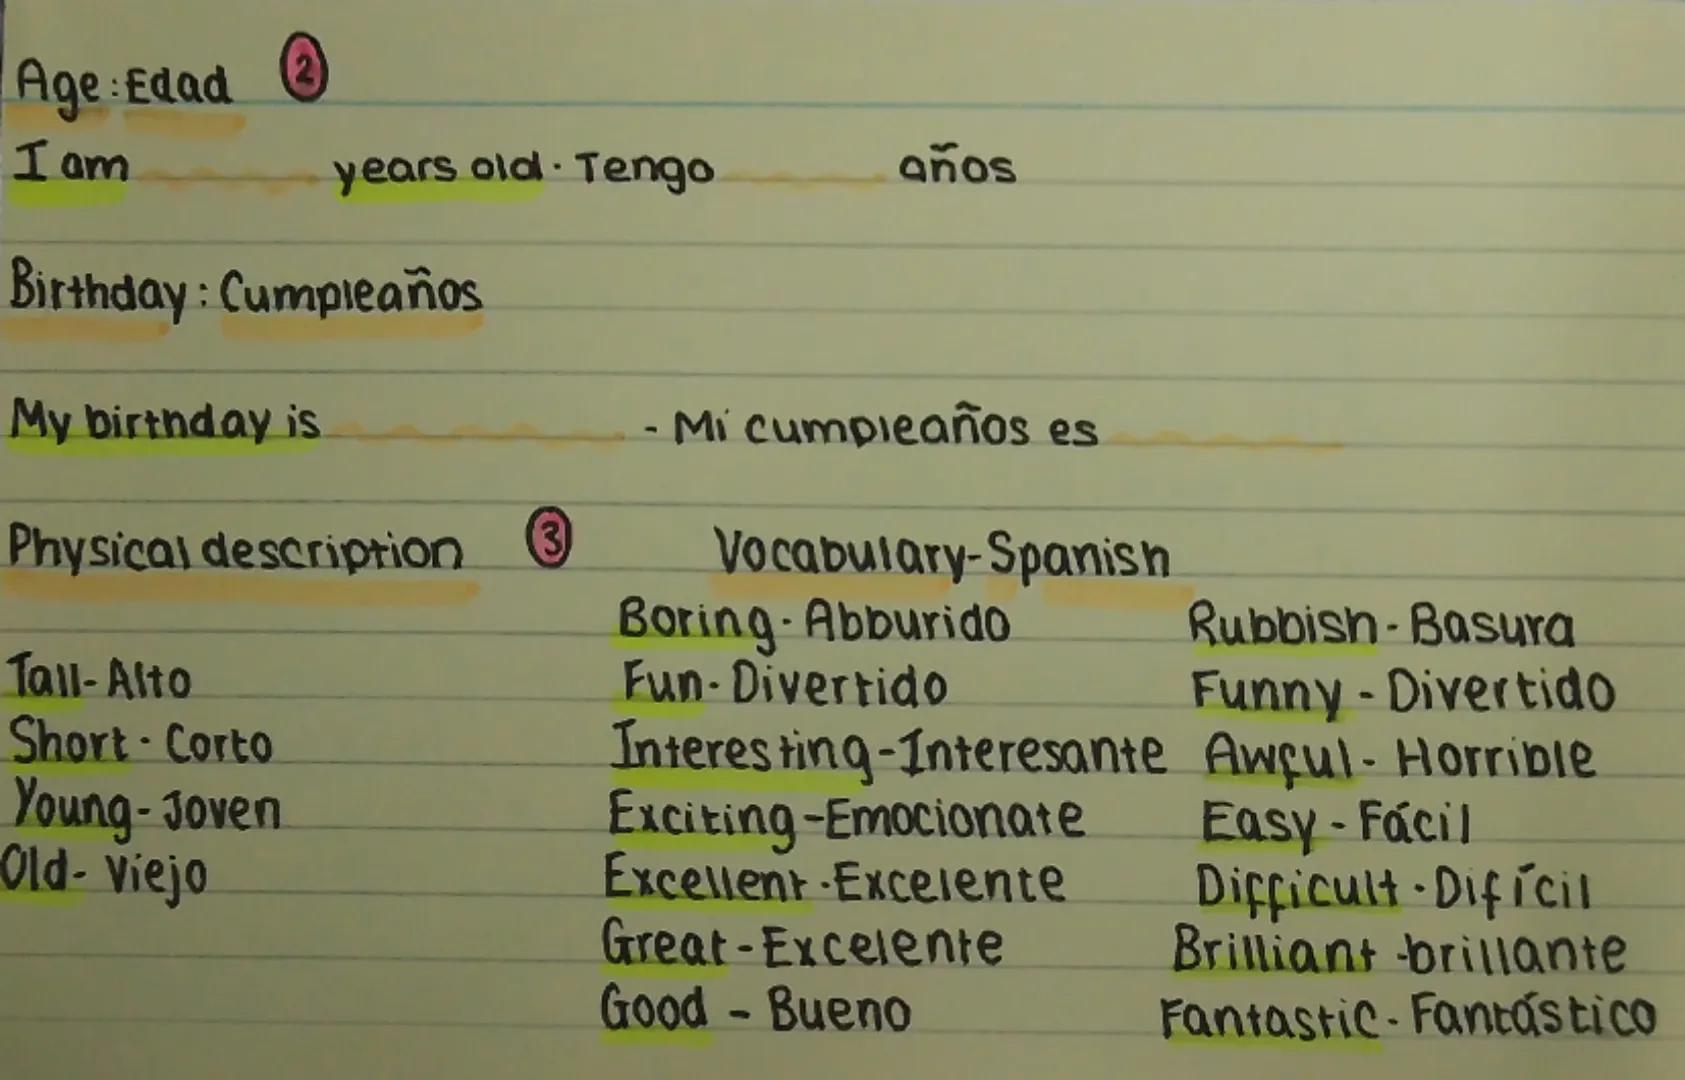 Age: Edad 2
I am years old. Tengo años
Birthday: Cumpleaños
My birthday is - Mi cumpleaños es
Physical description 3
Tall - Alto
Short - Corto
Young - Joven
Old - Viejo
Vocabulary - Spanish
Boring - Abburido
Fun - Divertido
Interesting - Interesante
Exciting - Emocionate
Excellent - Excelente
Great - Excelente
Good - Bueno
Rubbish - Basura
Funny - Divertido
Awful - Horrible
Easy - Fácil
Difficult - Difícil
Brilliant - brillante
Fantastic - Fantástico